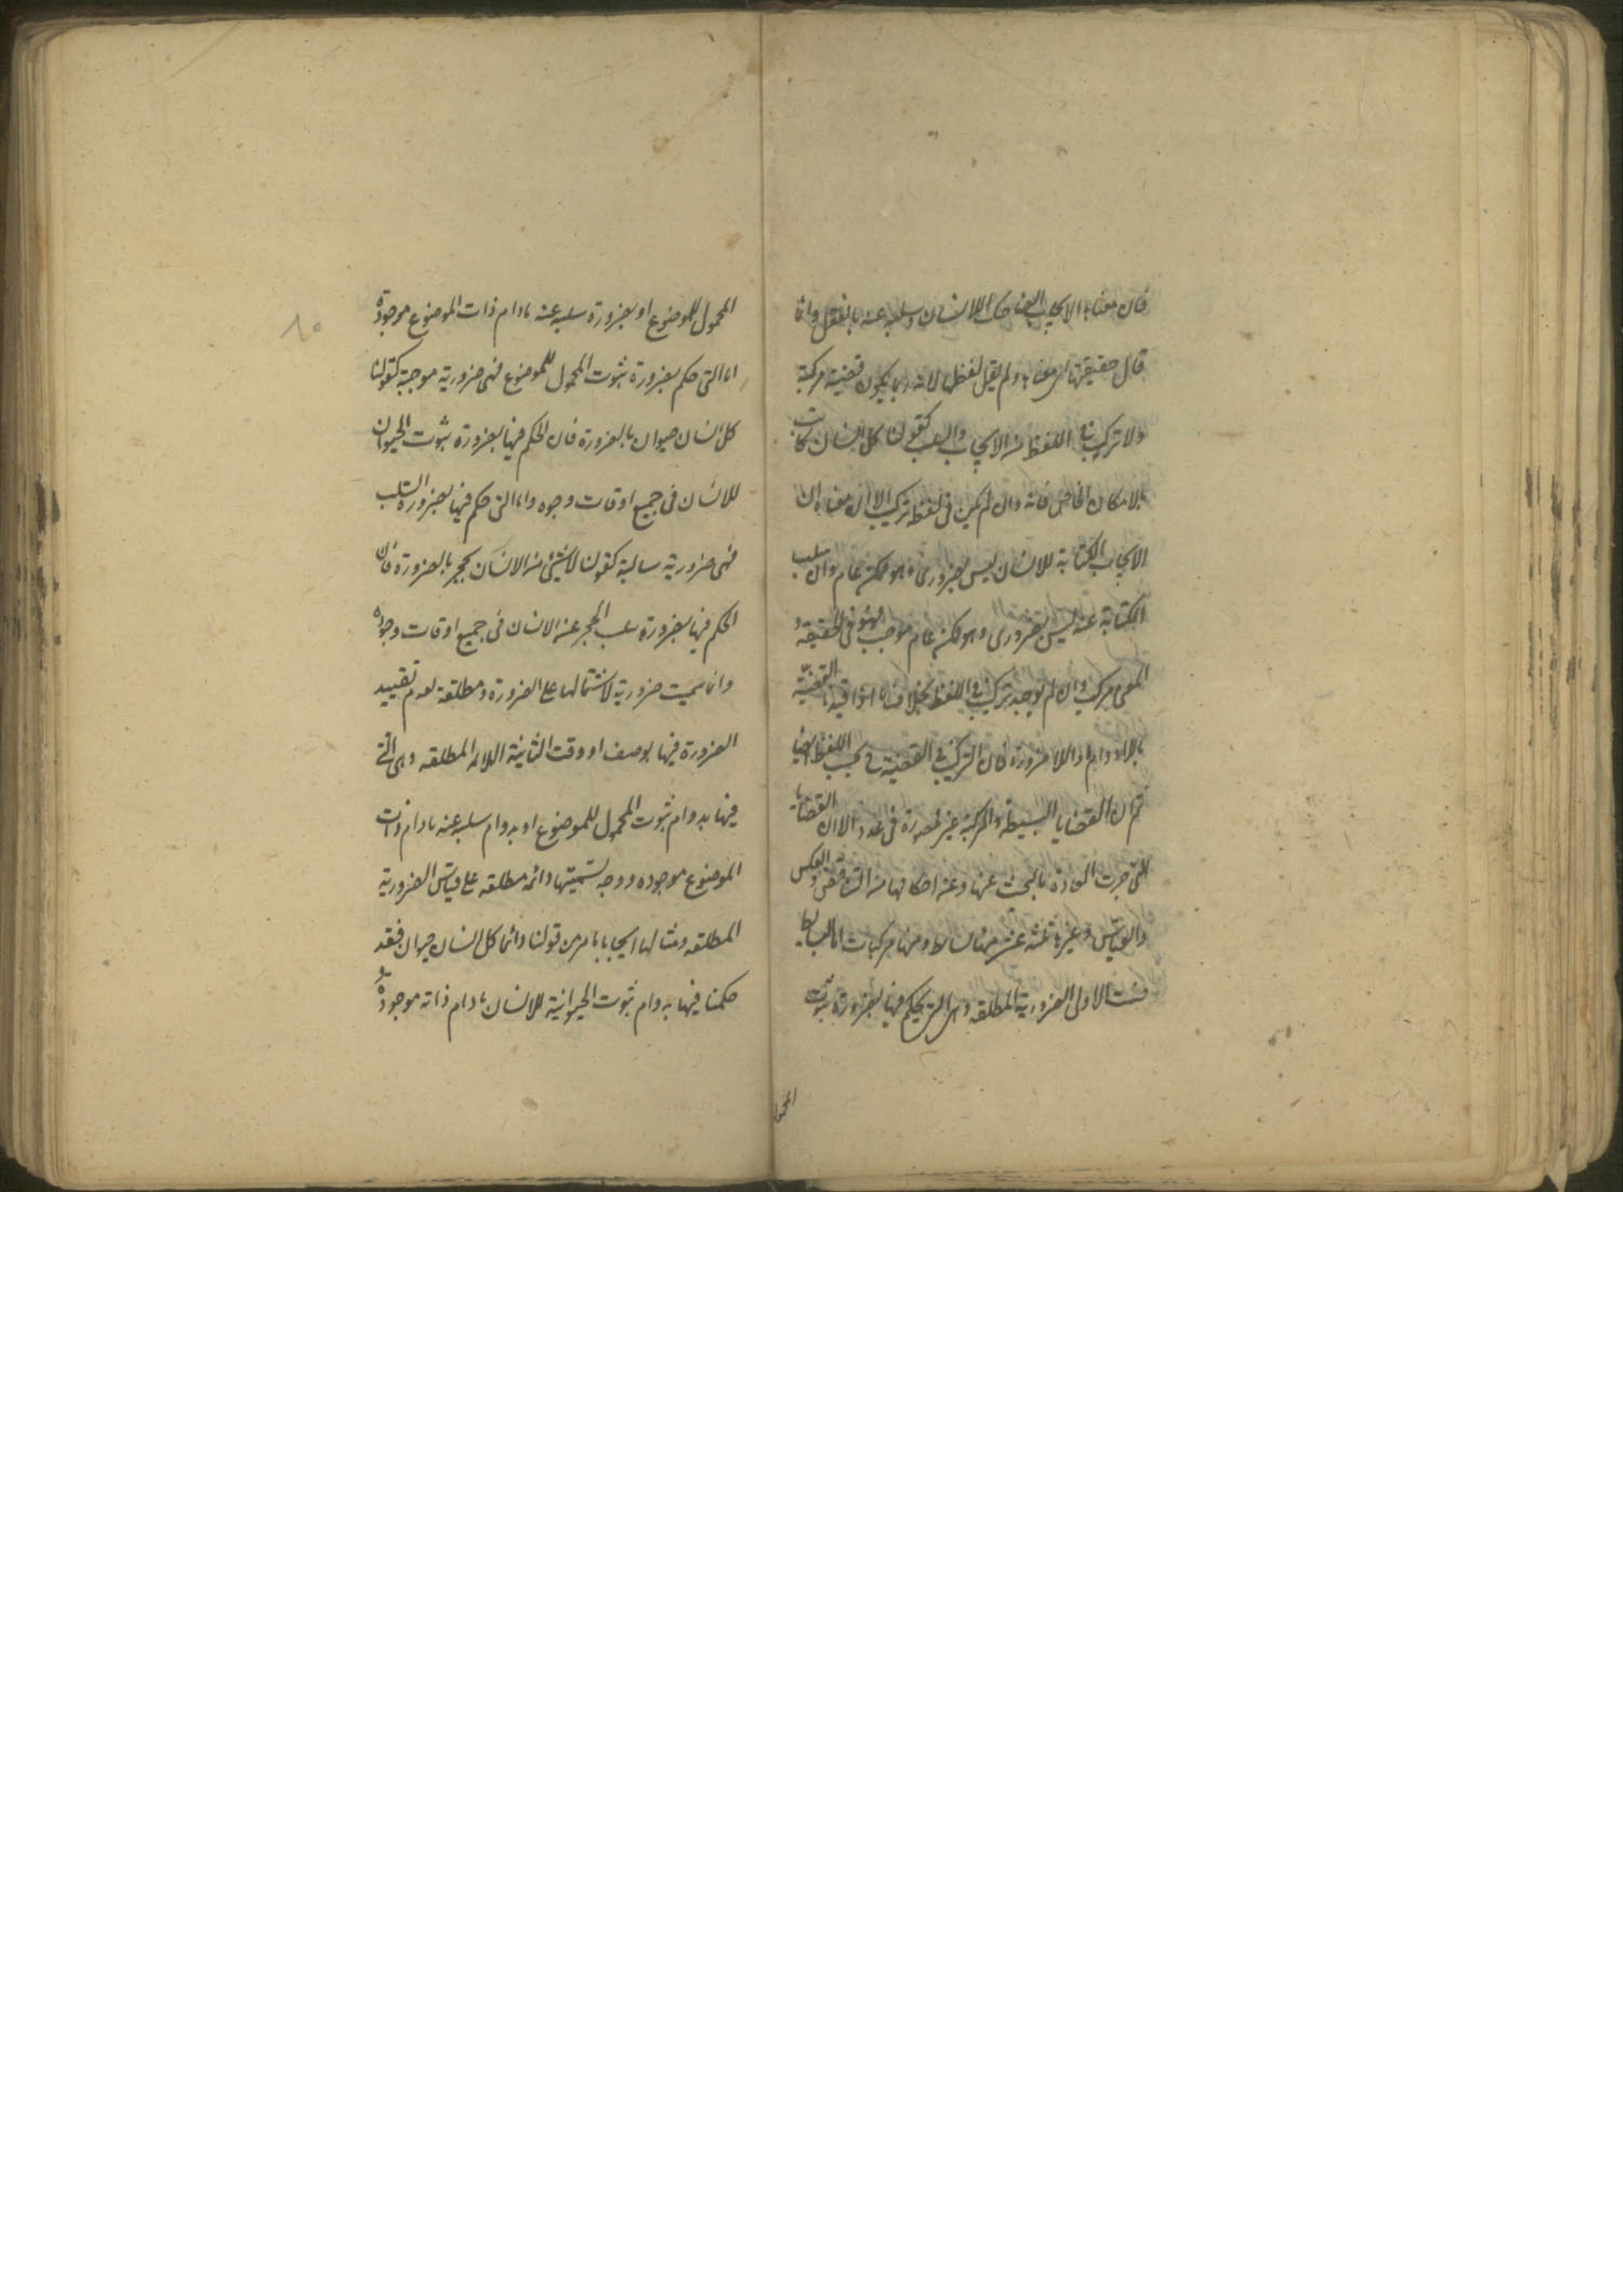 فان معناها الايجاب الضاحك للانسان وسلبه عنه بالفعل وانما
قال حقيقتها اى معناها ولم يقل لفظها لانه ربما يكون قضية مركبة
ولا تركيب فى اللفظ من الايجاب والسلب كقولنا كل انسان كاتب
بالامكان الخاص فانه وان لم يكن فى لفظه تركيب الا ان معناه ان
الايجاب الكتابة للانسان ليس بضرورى وهو ممكن عام وان سلب
الكتابة عنه ليس بضرورى وهو ممكن عام موجب فهو فى الحقيقة و
المعنى مركب وان لم يوجد تركيب فى اللفظ بخلاف ما اذا قيدنا القضية
باللادوام واللاضرورة فان التركيب فى القضية بحسب اللفظ ايضا
ثم ان القضايا البسيطة والمركبة غير محصورة فى عدد الا ان القضايا
التى جرت العادة بالبحث عنها وعن احكامها من التناقض والعكس
والقياس وغيرها ثلثه عشر منها بسائط ومنها مركبات اما البسايط
فست الاولى الضرورية المطلقه وهى التى يحكم فيها بضرورة ثبوت
المحمول
المحمول للموضوع او بضرورة سلبه عنه مادام ذات الموضوع موجودة
اما التى حكم بضرورة ثبوت المحمول للموضوع فهى ضرورية موجبة كقولنا
كل انسان حيوان بالضرورة فان الحكم فيها بضرورة ثبوت الحيوان
للانسان فى جميع اوقات وجوده واما التى حكم فيها بضرورة السلب
فهى ضرورية سالبة كقولنا لا شيئ من الانسان بحجر بالضرورة فان
الحكم فيها بضرورة سلب الحجر عن الانسان فى جميع اوقات وجوده
وانما سميت ضرورية لاشتمالها على الضرورة ومطلقة لعدم تقييد
الضرورة فيها بوصف او وقت الثانية الدائمة المطلقه وهى التى
فيها بدوام ثبوت المحمول للموضوع او بدوام سلبه عنه مادام ذات
الموضوع موجوده ووجه تسميتها دائمه مطلقه على قياس الضرورية
المطلقه ومثالها ايجابا ما مر من قولنا دائما كل انسان حيوان فقد
حكمنا فيها بدوام ثبوت الحيوانية للانسان مادام ذاته موجودة
٨٠